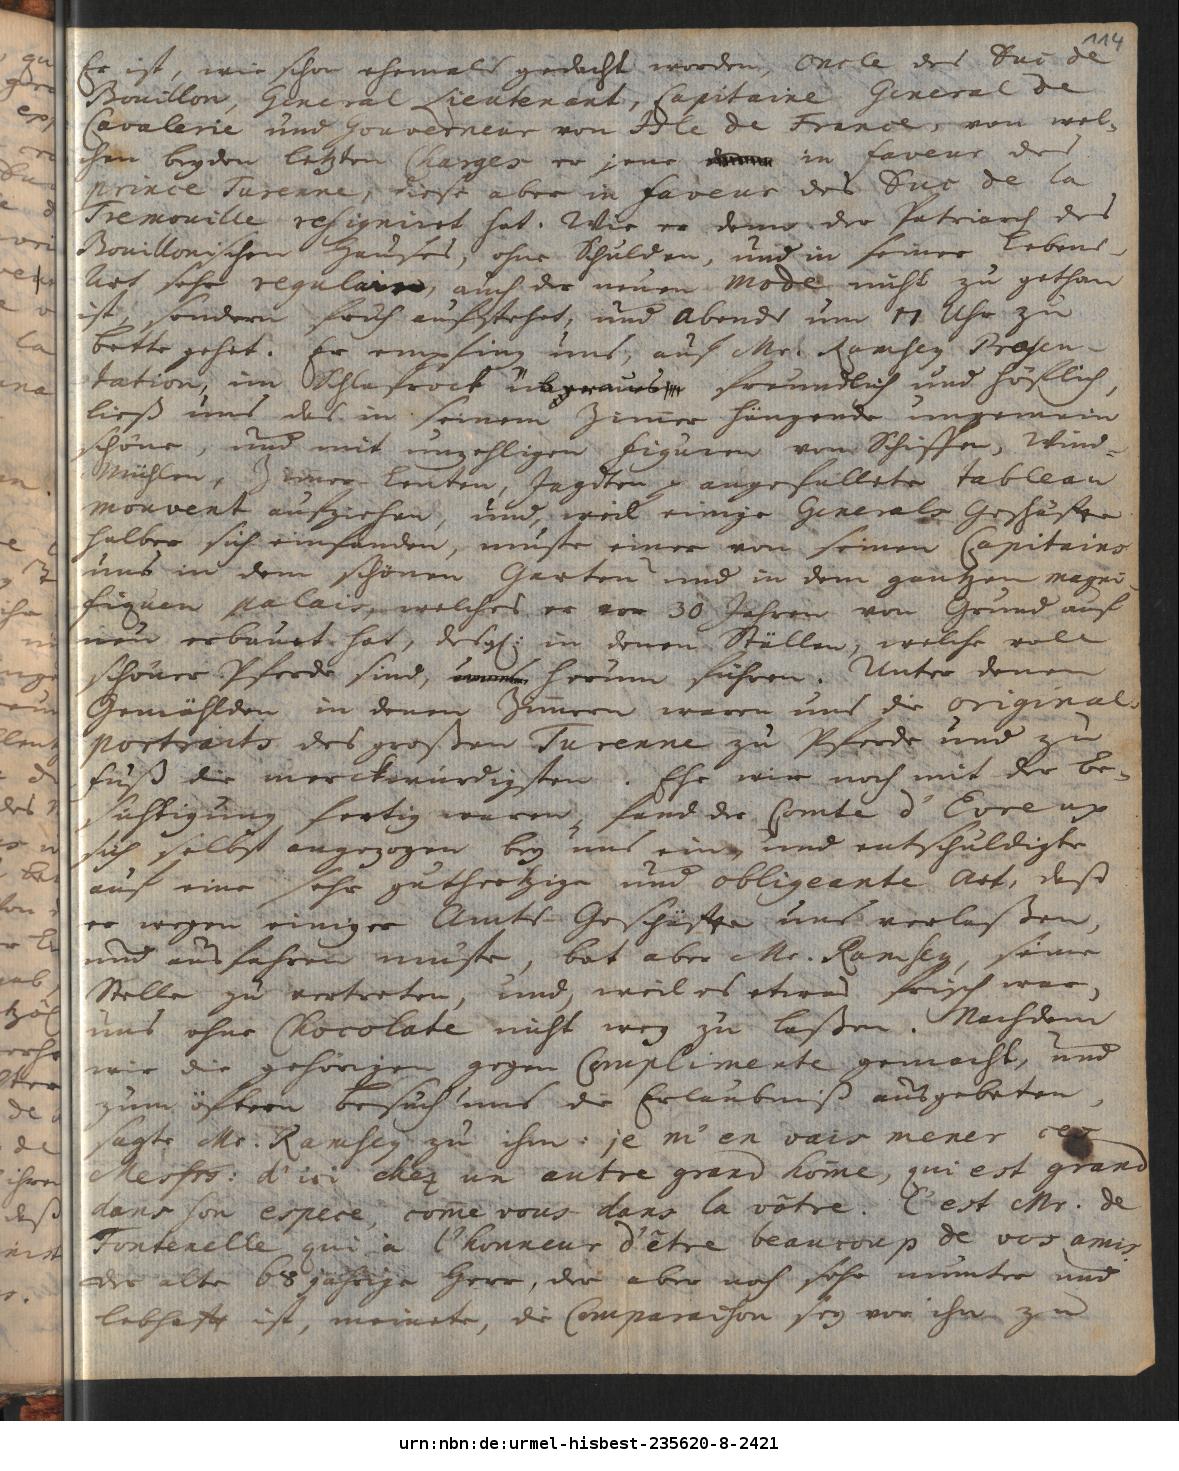 114
Er ist, wie schon ehemals gedacht worden, Oncle des Duc de
Bouillon, General Lieutenant, Capitaine General de
Cavalerie und Gouverneur von Isle de France, von wel-
chen beyden letzten Charges er jene in faveur des
prince Turenne, diese aber in faveur des Duc de la
Tremouille resigniret hat. Wie er denn der Patriarch des
Bouillonischen Hauses, ohne Schulden, und in seiner Lebens-
Art sehr regulair, auch der neuen Mode nicht zu gethan
ist, sondern früh aufstehet, und Abends um 11 Uhr zu
bette gehet. Er empfing uns, auf Mr. Ramsey Presen-
tation, im Schlafrock überaus freundlich und höflich,
ließ uns das in seinem Zimmer hängende ungemein
schöne, und mit unzehligen Figuren von Schiffen, Wind-
Mühlen, Leuten, Jagdten p angefüllete tableau
mouvent aufziehen, und, weil einige Generals Geschäffte
halber sich einfanden, muste einer von seinen Capitains
uns in dem schönen Garten und in dem gantzen magni-
fiquen palais, welches er vor 30 Jahren von Grund auf
neu erbauet hat, desgl: in denen Ställen, welche voll
schöner Pferde sind, herum führen. Unter denen
Gemählden in denen Zimmern waren uns die original
portraits des großen Turenne zu Pferde und zu
Fuß die merckwürdigsten. Ehe wir noch mit der Be-
sichtigung fertig waren, fand der Comte d'Evreux
sich selbst angezogen bey uns ein, und entschuldigte
auf eine sehr guthertzige und obligeante Art, daß
er wegen einiger Amts Geschäffte uns verlaßen,
und ausfahren muste, bat aber Mr. Ramsey, seine
Stelle zu vertreten, und, weil es etwas frisch war,
uns ohne Chocolate nicht weg zu laßen. Nachdem
wir die gehörigen gegen Complimente gemacht, und
zum öftern Besuch uns die Erlaubniß ausgebeten,
sagte Mr. Ramsey zu ihm: je m'en vais mener ces
Messrs: d'ici chez un autre grand home, qui est grand
dans son espece, come vous dans la vôtre. C'est Mr. de
Fontenelle qui a l'honneur d'être beaucoup de vos amis.
der alte 68 jährige Herr, der aber noch sehr munter und
lebhafft ist, meinete, die Comparaison sey vor ihn zu